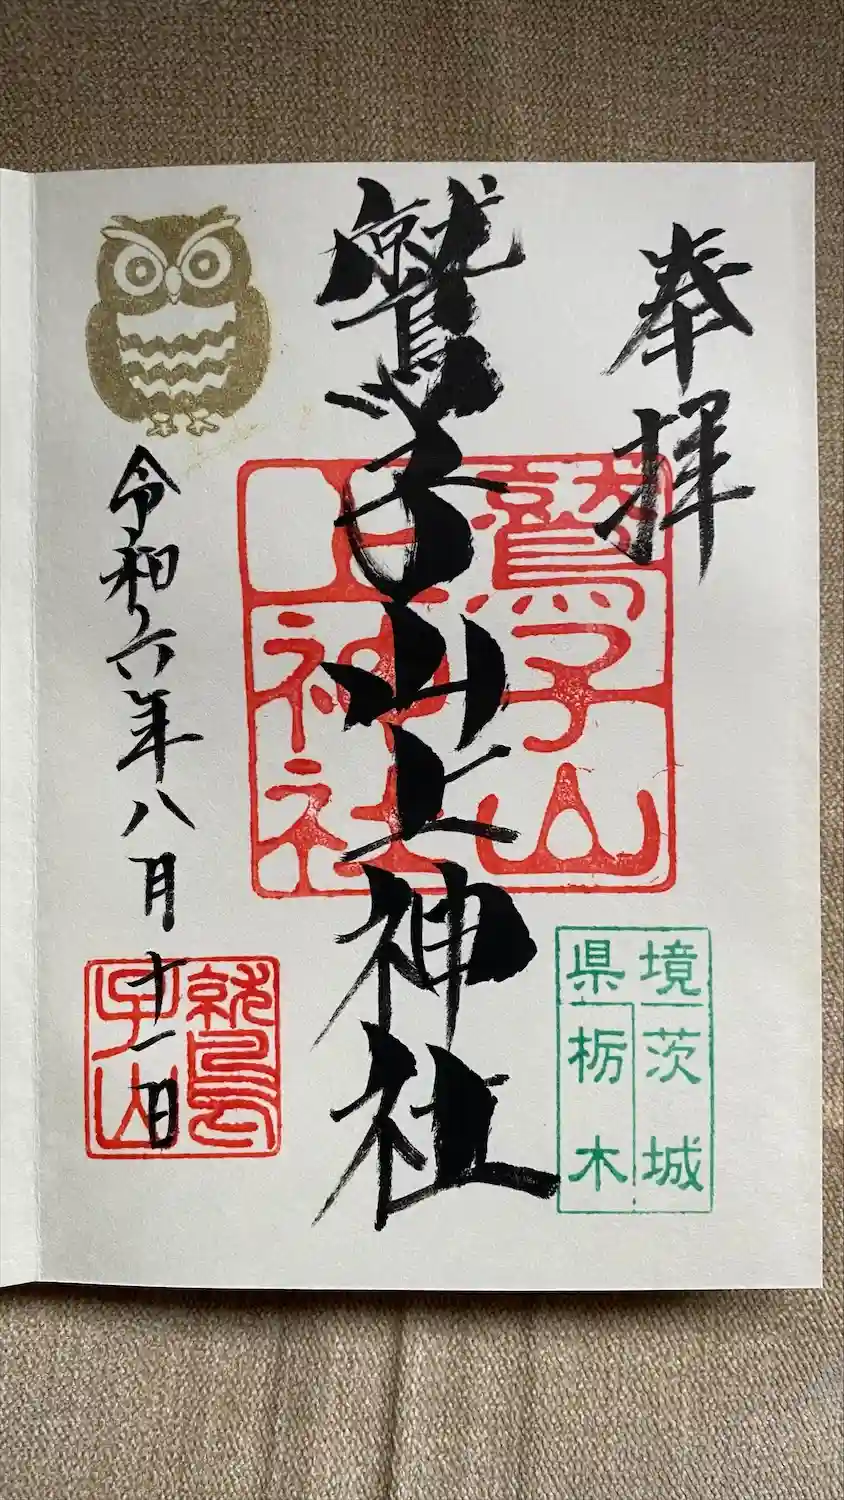 奉拝
鷲子山上神社
令和六年八月十一日
鷲子山
上神社
境 茨城
県 栃木
鷲
子山